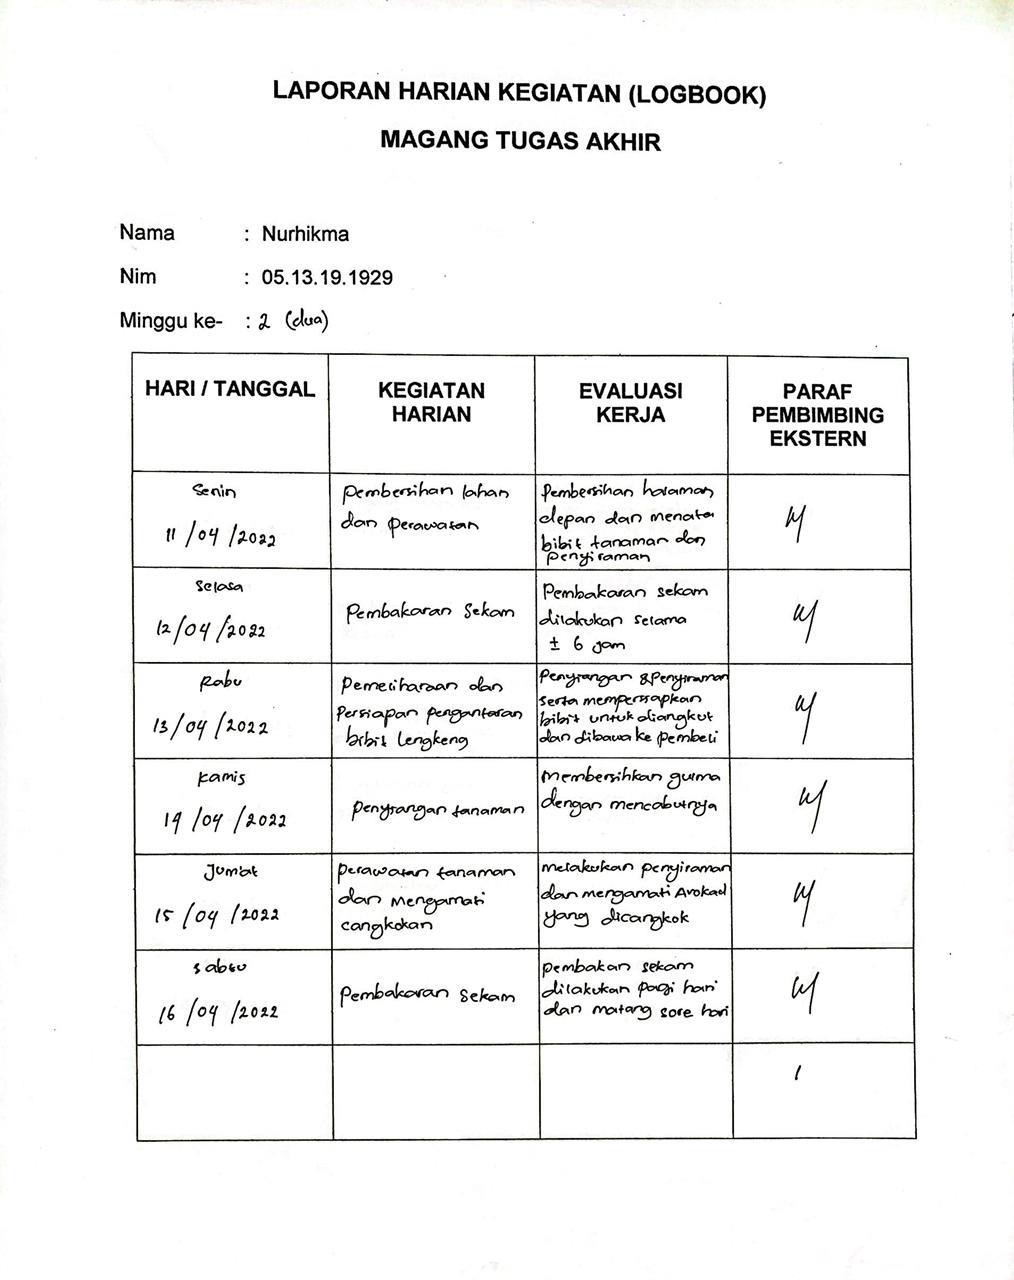 LAPORAN HARIAN KEGIATAN (LOGBOOK)
MAGANG TUGAS AKHIR
Nama : Nurhikma
Nim : 05.13.19.1929
Minggu ke- : 2 (dua)
HARI / TANGGAL
KEGIATAN
HARIAN
EVALUASI
KERJA
PARAF
PEMBIMBING
EKSTERN
Senin
11/04/2022
Pembersihan lahan
dan perawatan
Pembersihan halaman
depan dan menata
bibit tanaman dan
Penyiraman
Selasa
12/04/2022
Pembakaran Sekam
Pembakaran sekam
dilakukan selama
± 6 jam
Rabu
13/04/2022
Pemeliharaan dan
Persiapan pengantaran
bibit lengkeng
Penyiangan & Penyiraman
serta mempersiapkan
bibit untuk diangkut
dan dibawa ke pembeli
Kamis
14/04/2022
Penyiangan tanaman
Membersihkan gulma
dengan mencabutnya
Jum'at
15/04/2022
Perawatan tanaman
dan Mengamati
cangkokan
Melakukan penyiraman
dan mengamati Avokad
yang dicangkok
Sabtu
16/04/2022
Pembakaran Sekam
Pembakan sekam
dilakukan pagi hari
dan matang sore hari